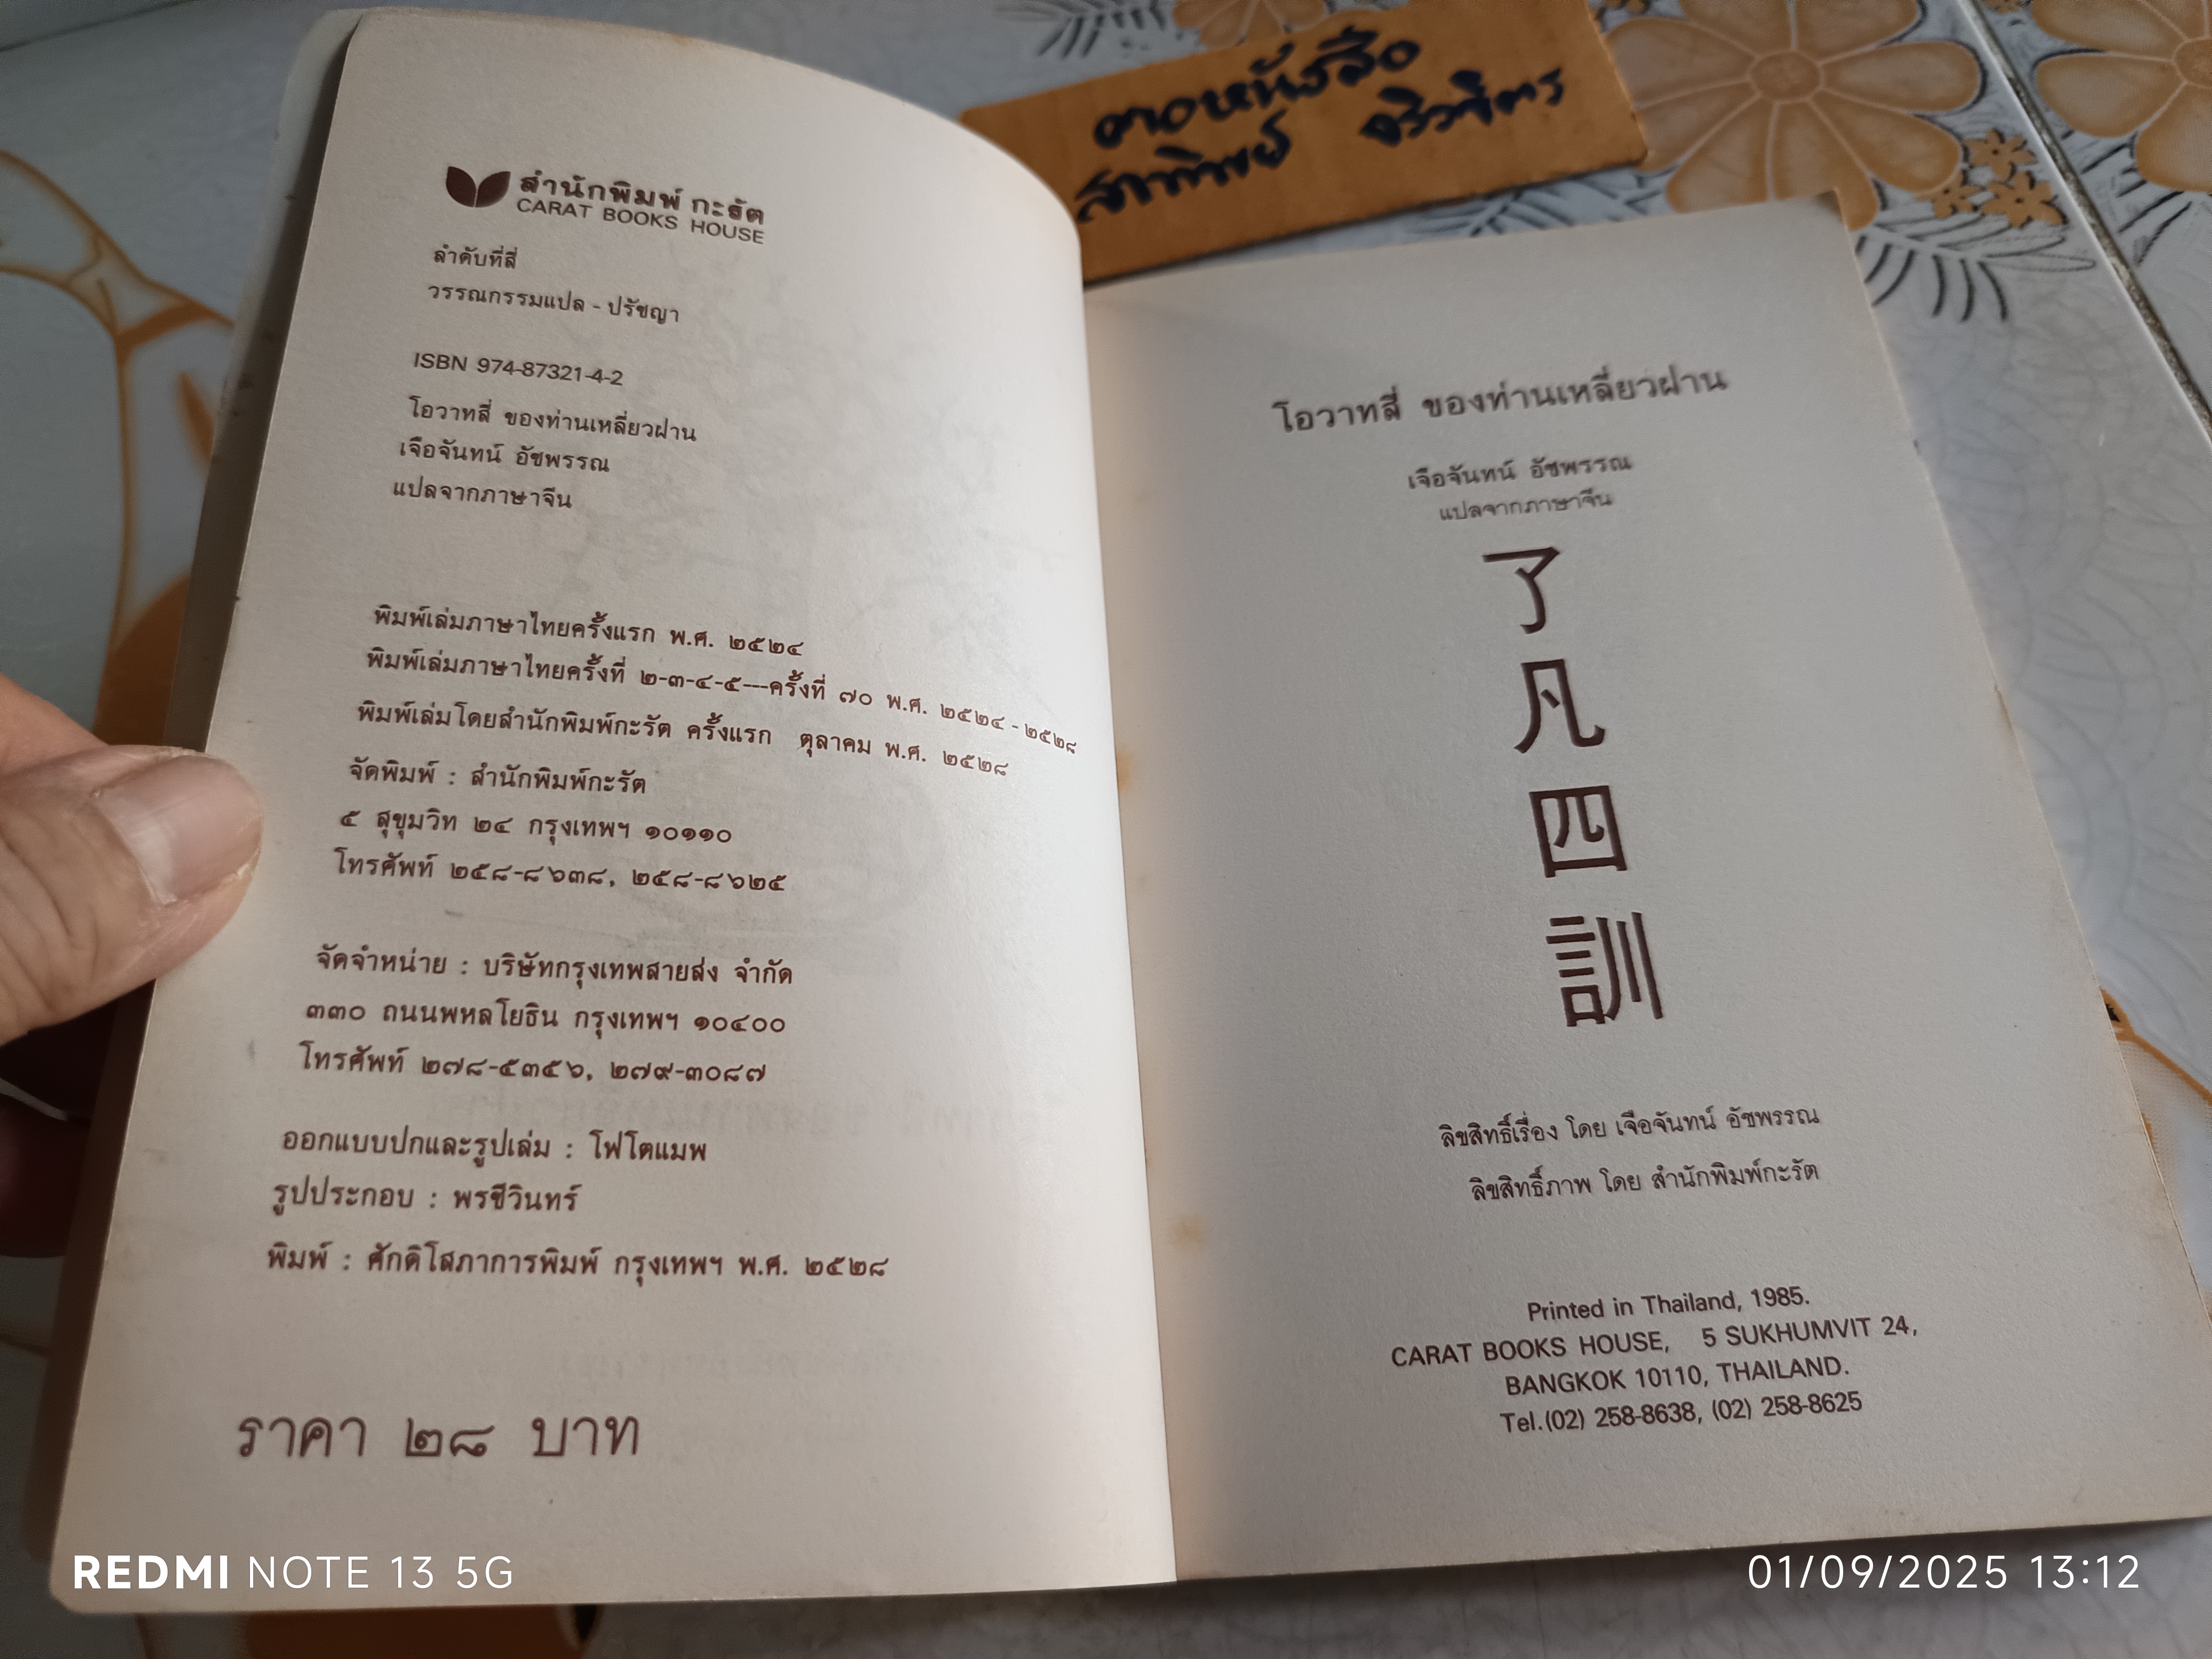 สำนักพิมพ์ กะรัต
CARAT BOOKS HOUSE
ลำดับที่สี่
วรรณกรรมแปล - ปรัชญา
ISBN 974-87321-4-2
โอวาทสี่ ของท่านเหลี่ยวฝาน
เจือจันทน์ อัชพรรณ
แปลจากภาษาจีน
พิมพ์เล่มภาษาไทยครั้งแรก พ.ศ. ๒๕๒๔
พิมพ์เล่มภาษาไทยครั้งที่ ๒-๓-๔-๕---ครั้งที่ ๗๐ พ.ศ. ๒๕๒๔ - ๒๕๒๘
พิมพ์เล่มโดยสำนักพิมพ์กะรัต ครั้งแรก ตุลาคม พ.ศ. ๒๕๒๘
จัดพิมพ์ : สำนักพิมพ์กะรัต
๕ สุขุมวิท ๒๔ กรุงเทพฯ ๑๐๑๑๐
โทรศัพท์ ๒๕๘-๘๖๓๘, ๒๕๘-๘๖๒๕
จัดจำหน่าย : บริษัทกรุงเทพสายส่ง จำกัด
๓๓๐ ถนนพหลโยธิน กรุงเทพฯ ๑๐๔๐๐
โทรศัพท์ ๒๗๘-๕๓๕๖, ๒๗๙-๓๐๘๗
ออกแบบปกและรูปเล่ม : โฟโตแมพ
รูปประกอบ : พรชีวินทร์
พิมพ์ : ศักดิโสภาการพิมพ์ กรุงเทพฯ พ.ศ. ๒๕๒๘
ราคา ๒๘ บาท
โอวาทสี่ ของท่านเหลี่ยวฝาน
เจือจันทน์ อัชพรรณ
แปลจากภาษาจีน
了
凡
四
訓
ลิขสิทธิ์เรื่อง โดย เจือจันทน์ อัชพรรณ
ลิขสิทธิ์ภาพ โดย สำนักพิมพ์กะรัต
Printed in Thailand, 1985.
CARAT BOOKS HOUSE, 5 SUKHUMVIT 24,
BANGKOK 10110, THAILAND.
Tel.(02) 258-8638, (02) 258-8625
REDMI NOTE 13 5G
01/09/2025 13:12